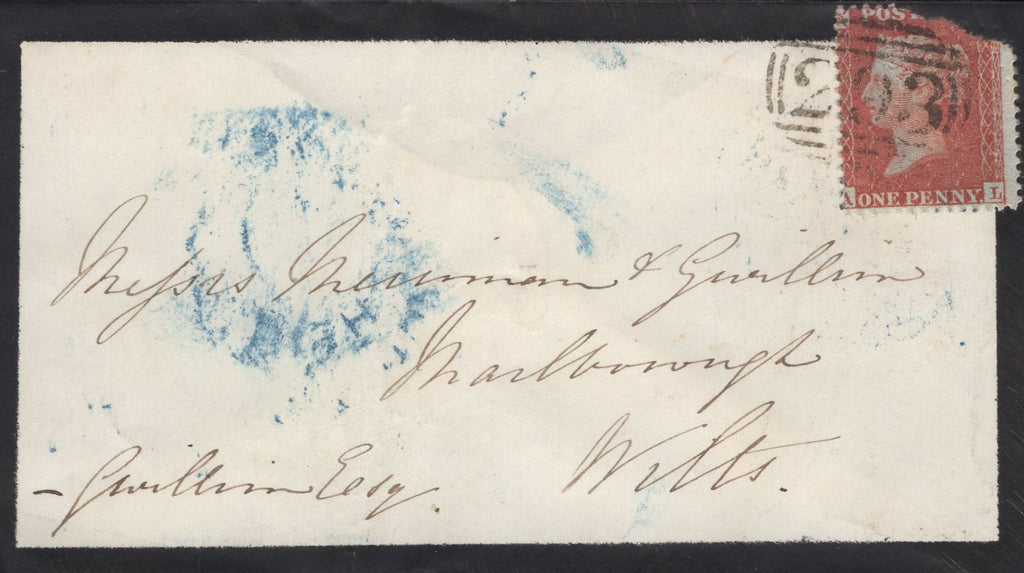 POS
22
ONE PENNY.
A L
Messrs Merriman & Gwillim
Marlborough
Wilts.
- Gwillim Esq.